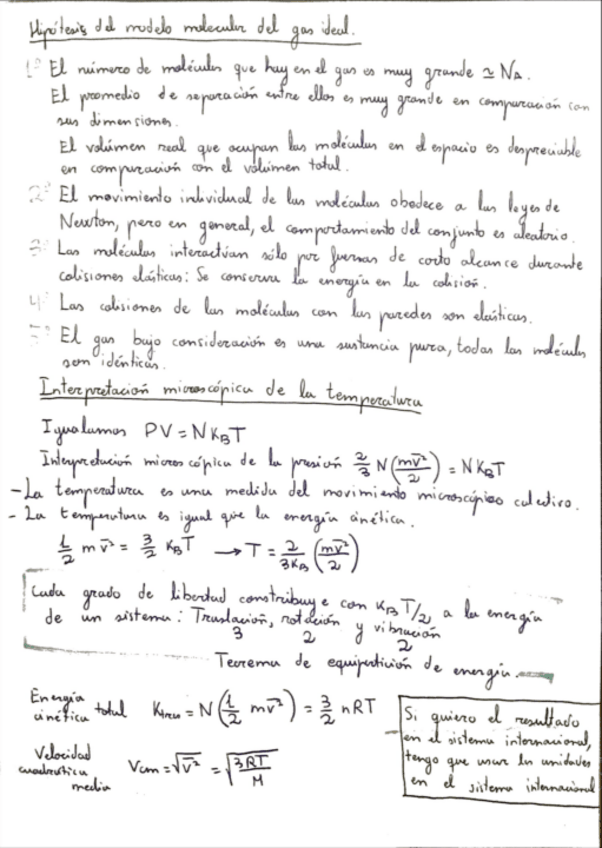 Hipótesis del modelo molecular del gas ideal.
1º El número de moléculas que hay en el gas es muy grande ≃ NA.
El promedio de separación entre ellas es muy grande en comparación con
sus dimensiones.
El volúmen real que ocupan las moléculas en el espacio es despreciable
en comparación con el volúmen total.
2º El movimiento individual de las moléculas obedece a las leyes de
Newton, pero en general, el comportamiento del conjunto es aleatorio.
3º Las moléculas interactúan sólo por fuerzas de corto alcance durante
colisiones elásticas: Se conserva la energía en la colisión.
4º Las colisiones de las moléculas con las paredes son elásticas.
5º El gas bajo consideración es una sustancia pura, todas las moléculas
son idénticas.
Interpretación microscópica de la temperatura
Igualamos PV = NKBT
Interpretación microscópica de la presión 2/3 N (mv̄²/2) = NKBT
- La temperatura es una medida del movimiento microscópico colectivo.
- La temperatura es igual que la energía cinética.
1/2 mv̄² = 3/2 KBT → T = 2/3KB (mv̄²/2)
Cada grado de libertad constribuye con KBT/2 a la energía
de un sistema: Traslación, rotación y vibración
3 2 2
Teorema de equipartición de energía.
Energía
cinética total Ktras = N (1/2 mv̄²) = 3/2 nRT
Velocidad
cuadrática
media Vcm = √v̄² = √3RT/M
Si quiero el resultado
en el sistema internacional,
tengo que usar las unidades
en el sistema internacional